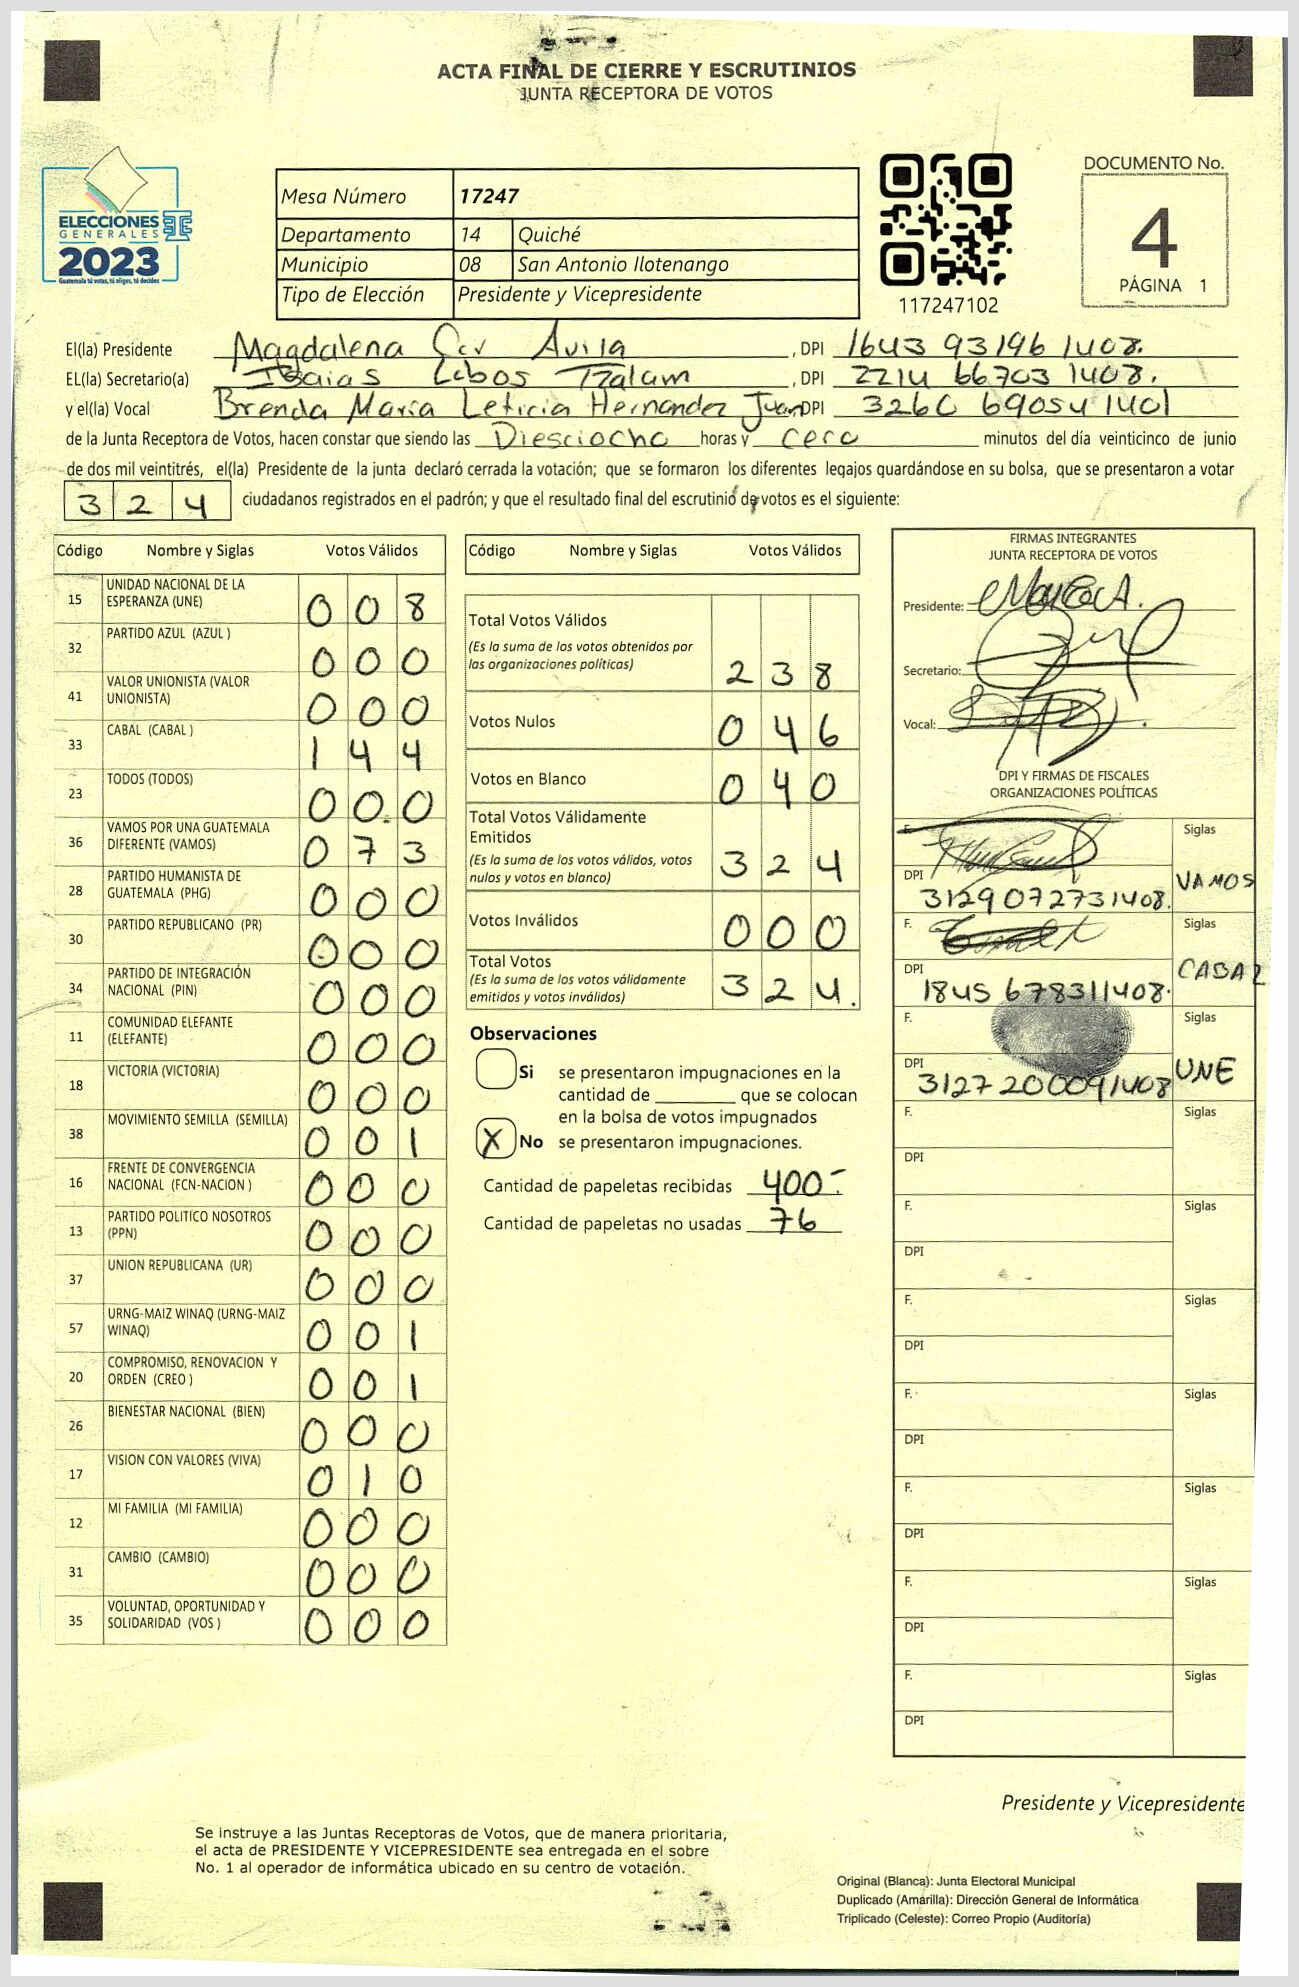 ACTA FINAL DE CIERRE Y ESCRUTINIOS
JUNTA RECEPTORA DE VOTOS
ELECCIONES
GENERALES
2023
Guatemala tú votas, tú eliges, tú decides
Mesa Número 17247
Departamento 14 Quiché
Municipio 08 San Antonio Ilotenango
Tipo de Elección Presidente y Vicepresidente
117247102
DOCUMENTO No.
4
PÁGINA 1
El(la) Presidente Magdalena Avila , DPI 1643 93196 1408.
EL(la) Secretario(a) Isaias Lobos Tzalam , DPI 2214 66703 1408.
y el(la) Vocal Brenda Maria Leticia Hernandez Juan DPI 3260 69054 1401
de la Junta Receptora de Votos, hacen constar que siendo las Diesciocho horas y cero minutos del día veinticinco de junio
de dos mil veintitrés, el(la) Presidente de la junta declaró cerrada la votación; que se formaron los diferentes legajos guardándose en su bolsa, que se presentaron a votar
3 2 4 ciudadanos registrados en el padrón; y que el resultado final del escrutinio de votos es el siguiente:
Código Nombre y Siglas Votos Válidos
15 UNIDAD NACIONAL DE LA
ESPERANZA (UNE) 0 0 8
32 PARTIDO AZUL (AZUL ) 0 0 0
41 VALOR UNIONISTA (VALOR
UNIONISTA) 0 0 0
33 CABAL (CABAL ) 1 4 4
23 TODOS (TODOS) 0 0 0
36 VAMOS POR UNA GUATEMALA
DIFERENTE (VAMOS) 0 7 3
28 PARTIDO HUMANISTA DE
GUATEMALA (PHG) 0 0 0
30 PARTIDO REPUBLICANO (PR) 0 0 0
34 PARTIDO DE INTEGRACIÓN
NACIONAL (PIN) 0 0 0
11 COMUNIDAD ELEFANTE
(ELEFANTE) 0 0 0
18 VICTORIA (VICTORIA) 0 0 0
38 MOVIMIENTO SEMILLA (SEMILLA) 0 0 1
16 FRENTE DE CONVERGENCIA
NACIONAL (FCN-NACION ) 0 0 0
13 PARTIDO POLITICO NOSOTROS
(PPN) 0 0 0
37 UNION REPUBLICANA (UR) 0 0 0
57 URNG-MAIZ WINAQ (URNG-MAIZ
WINAQ) 0 0 1
20 COMPROMISO, RENOVACION Y
ORDEN (CREO ) 0 0 1
26 BIENESTAR NACIONAL (BIEN) 0 0 0
17 VISION CON VALORES (VIVA) 0 1 0
12 MI FAMILIA (MI FAMILIA) 0 0 0
31 CAMBIO (CAMBIO) 0 0 0
35 VOLUNTAD, OPORTUNIDAD Y
SOLIDARIDAD (VOS ) 0 0 0
Código Nombre y Siglas Votos Válidos
Total Votos Válidos
(Es la suma de los votos obtenidos por
las organizaciones políticas) 2 3 8
Votos Nulos 0 4 6
Votos en Blanco 0 4 0
Total Votos Válidamente
Emitidos
(Es la suma de los votos válidos, votos
nulos y votos en blanco) 3 2 4
Votos Inválidos 0 0 0
Total Votos
(Es la suma de los votos válidamente
emitidos y votos inválidos) 3 2 4.
Observaciones
Si se presentaron impugnaciones en la
cantidad de ________ que se colocan
en la bolsa de votos impugnados
X No se presentaron impugnaciones.
Cantidad de papeletas recibidas 400.-
Cantidad de papeletas no usadas 76
FIRMAS INTEGRANTES
JUNTA RECEPTORA DE VOTOS
Presidente:
Secretario:
Vocal:
DPI Y FIRMAS DE FISCALES
ORGANIZACIONES POLÍTICAS
F. Siglas
DPI 3129 07273 1408. VAMOS
F. Siglas
DPI 1845 67831 1408. CABAL
F. Siglas
DPI 3127 20009 1408 UNE
F. Siglas
DPI
F. Siglas
DPI
F. Siglas
DPI
F. Siglas
DPI
F. Siglas
DPI
F. Siglas
DPI
F. Siglas
DPI
Presidente y Vicepresidente
Se instruye a las Juntas Receptoras de Votos, que de manera prioritaria,
el acta de PRESIDENTE Y VICEPRESIDENTE sea entregada en el sobre
No. 1 al operador de informática ubicado en su centro de votación.
Original (Blanca): Junta Electoral Municipal
Duplicado (Amarilla): Dirección General de Informática
Triplicado (Celeste): Correo Propio (Auditoría)